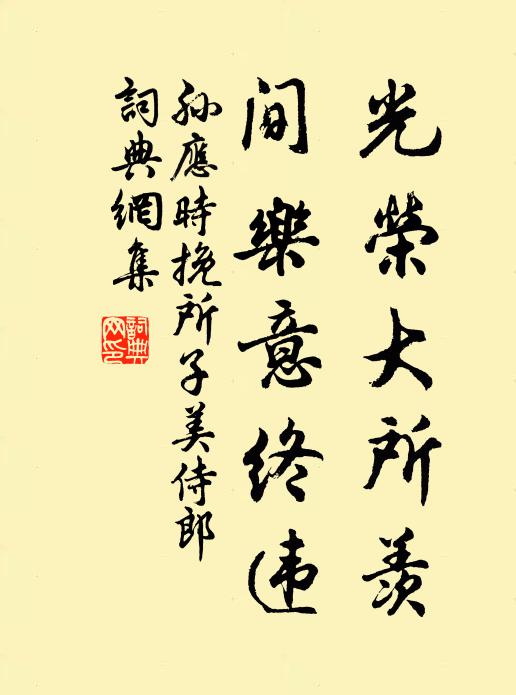 光榮大所羨
间樂意终违
孙應時挽所子美侍郎
詞典網集
詞典网印